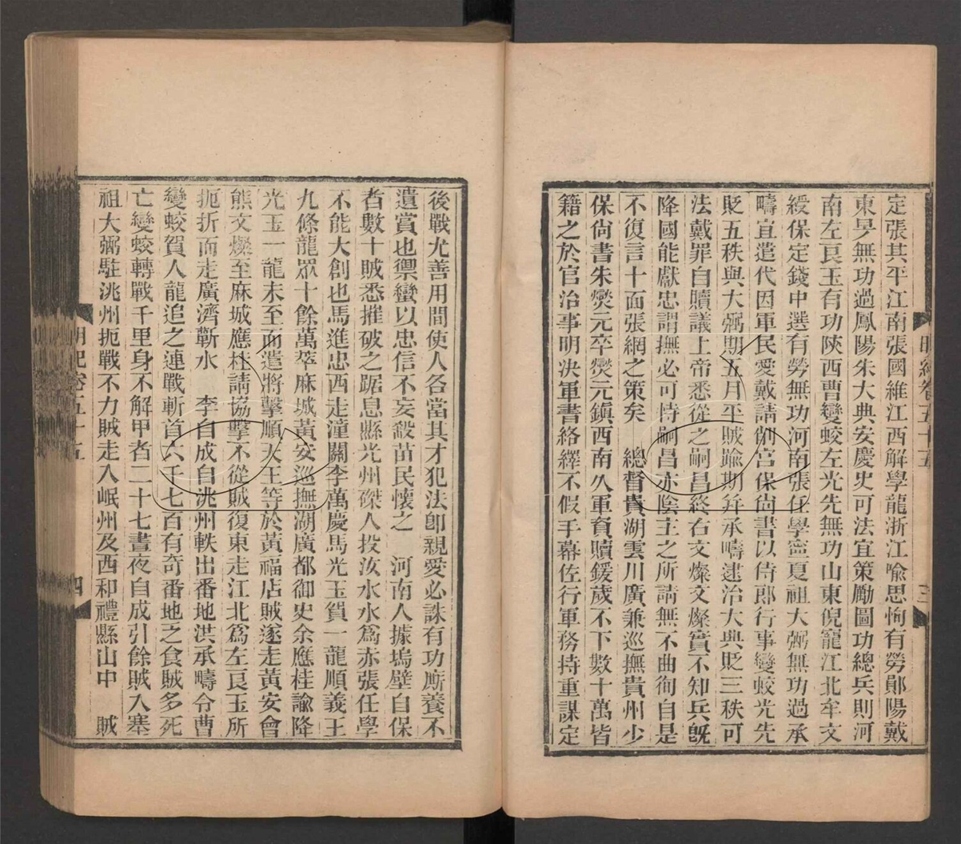 定張其平江南張國維江西解學龍浙江喻思恂有勞鄖陽戴
東旻無功過鳳陽朱大典安慶史可法宜策勵圖功總兵則河
南左良玉有功陝西曹變蛟左光先無功山東倪寵江北牟文
綬保定錢中選有勞無功河南張任學寧夏祖大弼無功過承
疇宜遣代因軍民愛戴請削宮保尚書以侍郎行事變蛟光先
貶五秩與大弼期五月平賊踰期并承疇逮治大典貶三秩可
法戴罪自贖議上帝悉從之嗣昌終右文燦文燦實不知兵既
降國能獻忠謂撫必可恃嗣昌亦陰主之所請無不曲徇自是
不復言十面張網之策矣　總督貴湖雲川廣兼巡撫貴州少
保尚書朱燮元卒燮元鎮西南久軍資贖鍰歲不下數十萬皆
籍之於官治事明決軍書絡繹不假手幕佐行軍務持重謀定
明紀卷五十五
三
後戰尤善用間使人各當其才犯法卽親愛必誅有功廝養不
遺賞也禦蠻以忠信不妄殺苗民懷之　河南人據塢壁自保
者數十賊悉摧破之踞息縣光州磔人投汝水水爲赤張任學
不能大創也馬進忠西走潼關李萬慶馬光玉賀一龍順義王
九條龍眾十餘萬萃麻城黃安巡撫湖廣都御史余應桂諭降
光玉一龍未至而遣將擊順天王等於黃福店賊遂走黃安會
熊文燦至麻城應桂請協擊不從賊復東走江北爲左良玉所
扼折而走廣濟蘄水　李自成自洮州軼出番地洪承疇令曹
變蛟賀人龍追之連戰斬首六千七百有奇番地乏食賊多死
亡變蛟轉戰千里身不解甲者二十七晝夜自成引餘賊入塞
祖大弼駐洮州扼戰不力賊走入岷州及西和禮縣山中　賊
明紀卷五十五
四